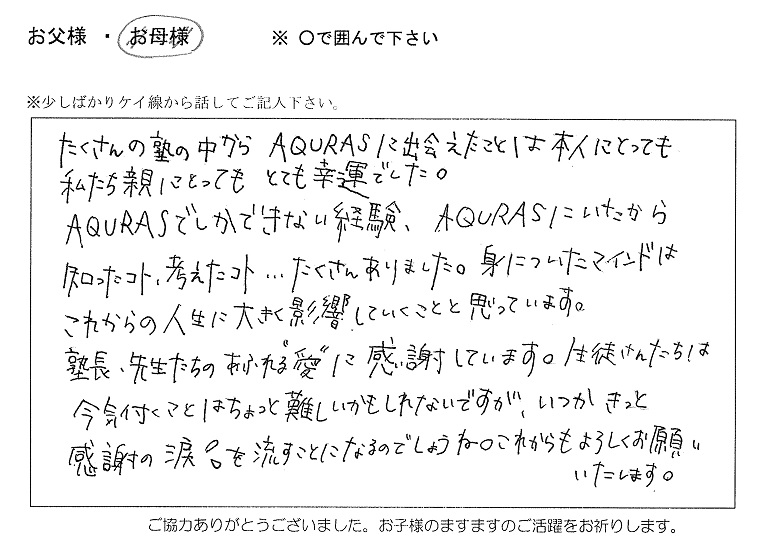 お父様 ・ お母様 ※ ○で囲んで下さい
※少しばかりケイ線から話してご記入下さい。
たくさんの塾の中から AQURASに出会えたことは本人にとっても
私たち親にとっても とても幸運でした。
AQURASでしかできない経験、AQURASにいたから
知ったコト、考えたコト…たくさんありました。身についたマインドは
これからの人生に大きく影響していくことと思っています。
塾長、先生たちのあふれる"愛"に感謝しています。生徒さんたちは
今気付くことはちょっと難しいかもしれないですが、いつかきっと
感謝の涙を流すことになるのでしょうね。これからもよろしくお願い
いたします。
ご協力ありがとうございました。お子様のますますのご活躍をお祈りします。